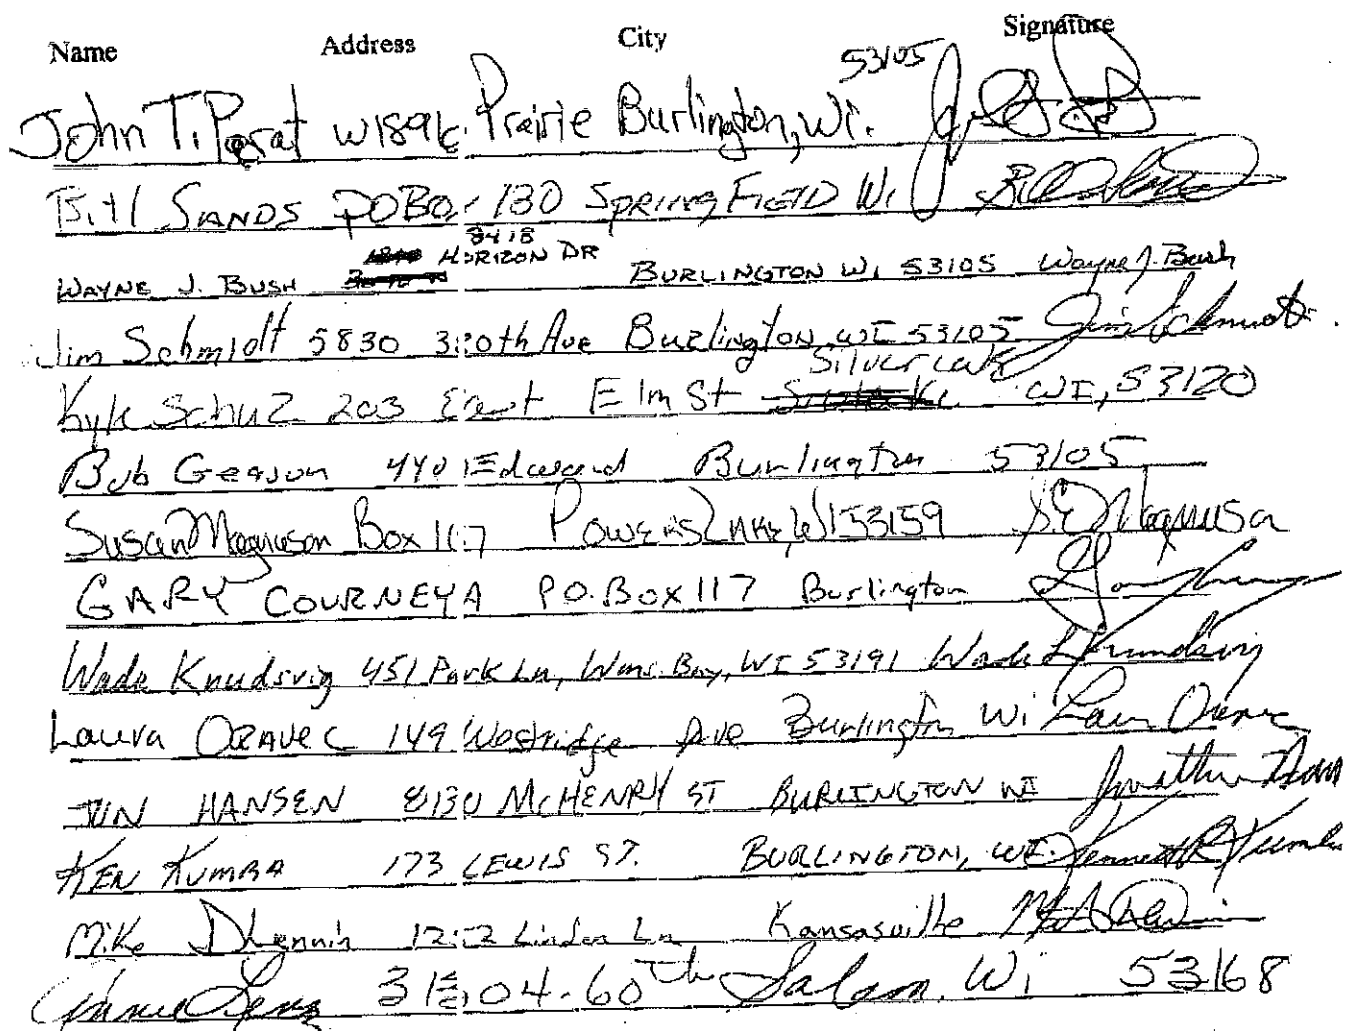 Name Address City Signature
John T. Porat W1896 Prairie Burlington, Wi. 53105
Bill SANDS POBox 130 SPRINGFIELD Wi
WAYNE J. BUSH 8418 HORIZON DR BURLINGTON WI 53105 Wayne J. Bush
Jim Schmidt 5830 Ave Burlington, WI 53105 Jim Schmidt
Kyle Schulz 203 East Elm St Silver Lake WI, 53120
Bob Geason 440 Edward Burlington 53105
Susan Magnuson Box 117 POWERS LAKE, WI 53159 S.E. Magnuson
GARY COURNEYA P.O. Box 117 Burlington
Wade Knudsvig 451 Park Ln, Wms. Bay, WI 53191 Wade L Knudsvig
Laura ORAVEC 149 Westridge Ave Burlington Wi Laura Oravec
JON HANSEN 8130 MCHENRY ST BURLINGTON WI Jonathan
KEN KUMBA 173 LEWIS ST. BURLINGTON, WI. Kenneth R Kumba
Mike Linden Ln Kansasville
60th Salem, Wi 53168